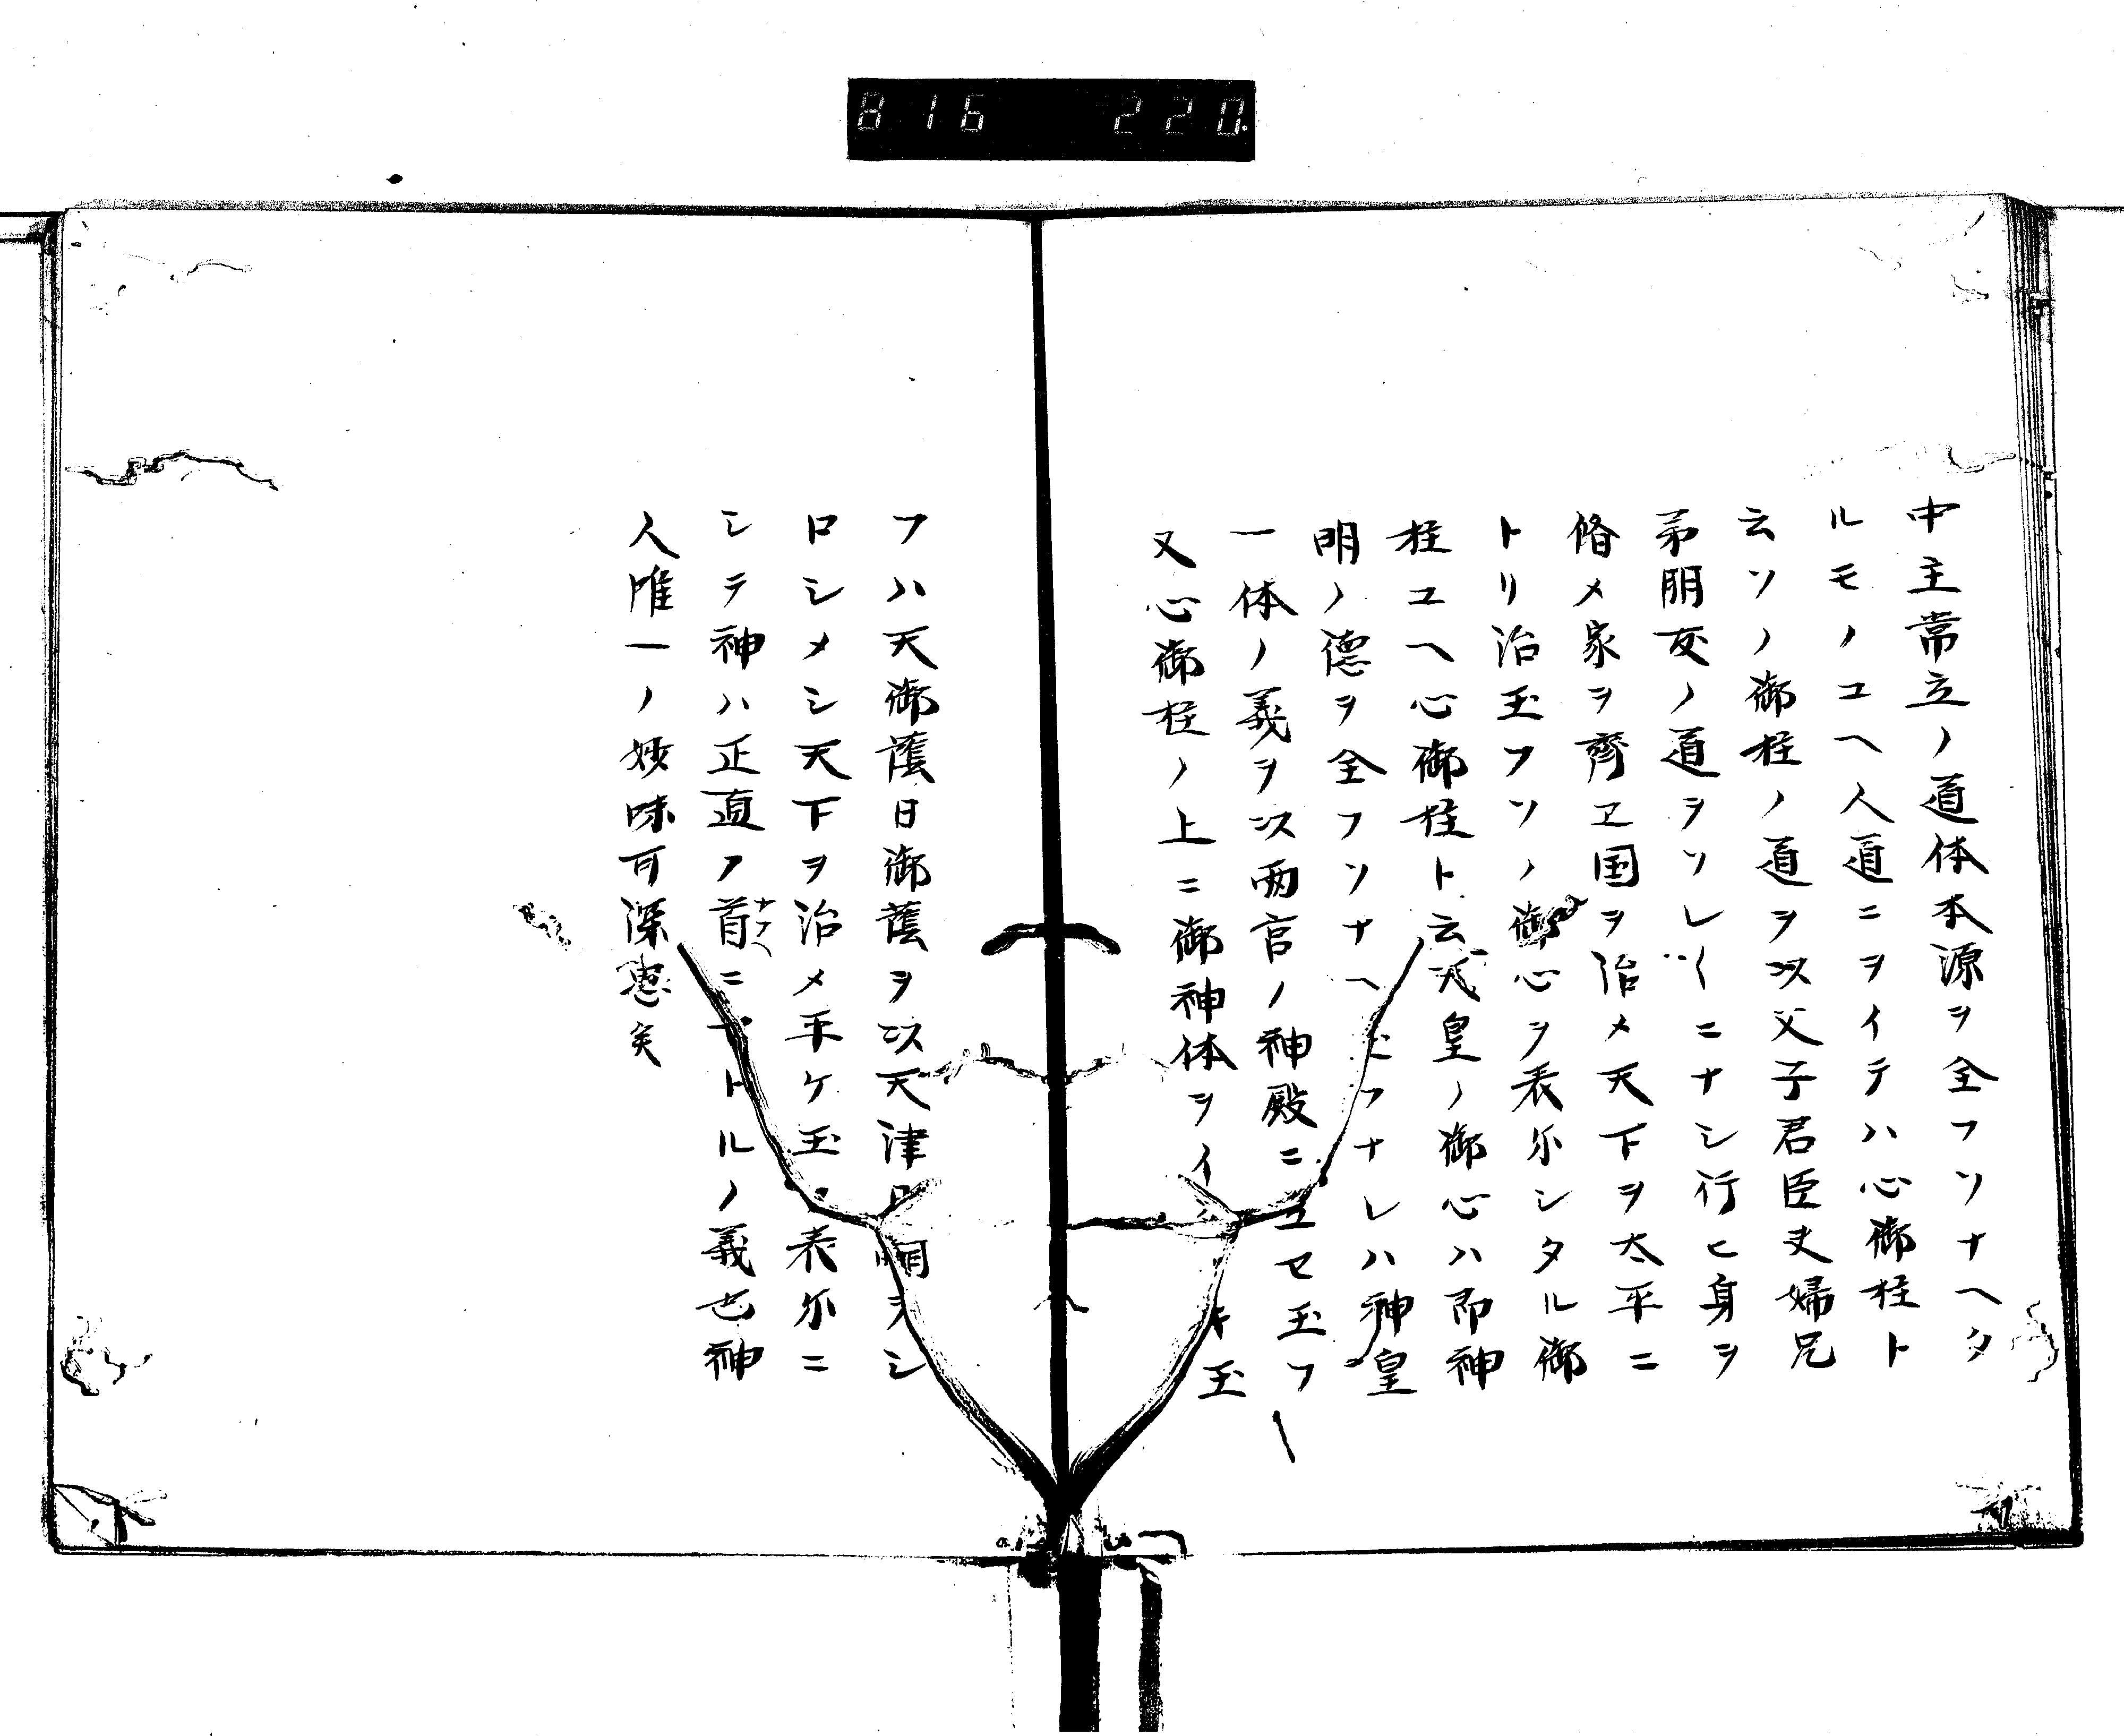 816 220.
中主常立ノ道体本源ヲ全フソナヘタ
ルモノユヘ人道ニヲイテハ心御柱ト
云ソノ御柱ノ道ヲ以父子君臣夫婦兄
弟朋友ノ道ヲソレ〱ニナシ行ヒ身ヲ
脩メ家ヲ齊ヱ国ヲ治メ天下ヲ太平ニ
トリ治玉フソノ御心ヲ表尓シタル御
柱ユヘ心御柱ト云天皇ノ御心ハ即神
明ノ德ヲ全フソナヘ玉フナレハ神皇
一体ノ義ヲ以両宮ノ神殿ニマセ玉フ
又心御柱ノ上ニ御神体ヲイタヽキ玉
フハ天御蔭日御蔭ヲ以天津日嗣ヲシ
ロシメシ天下ヲ治メ平ケ玉フ表尓ニ
シテ神ハ正直ノ首ニヤトルノ義也神
人唯一ノ妙味可深思矣